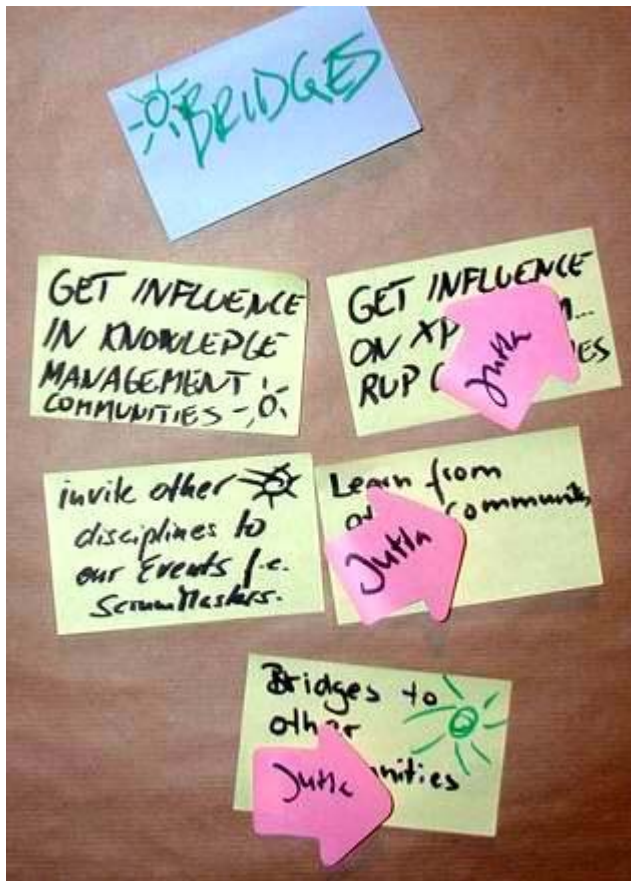 BRIDGES
GET INFLUENCE
IN KNOWLEPGE
MANAGEMENT
COMMUNITIES
GET INFLUENCE
ON XP
RUP
Jutta
invite other
disciplines to
our Events f.e.
ScrumMasters.
Learn from
communit
Jutta
Bridges to
other
Jutta